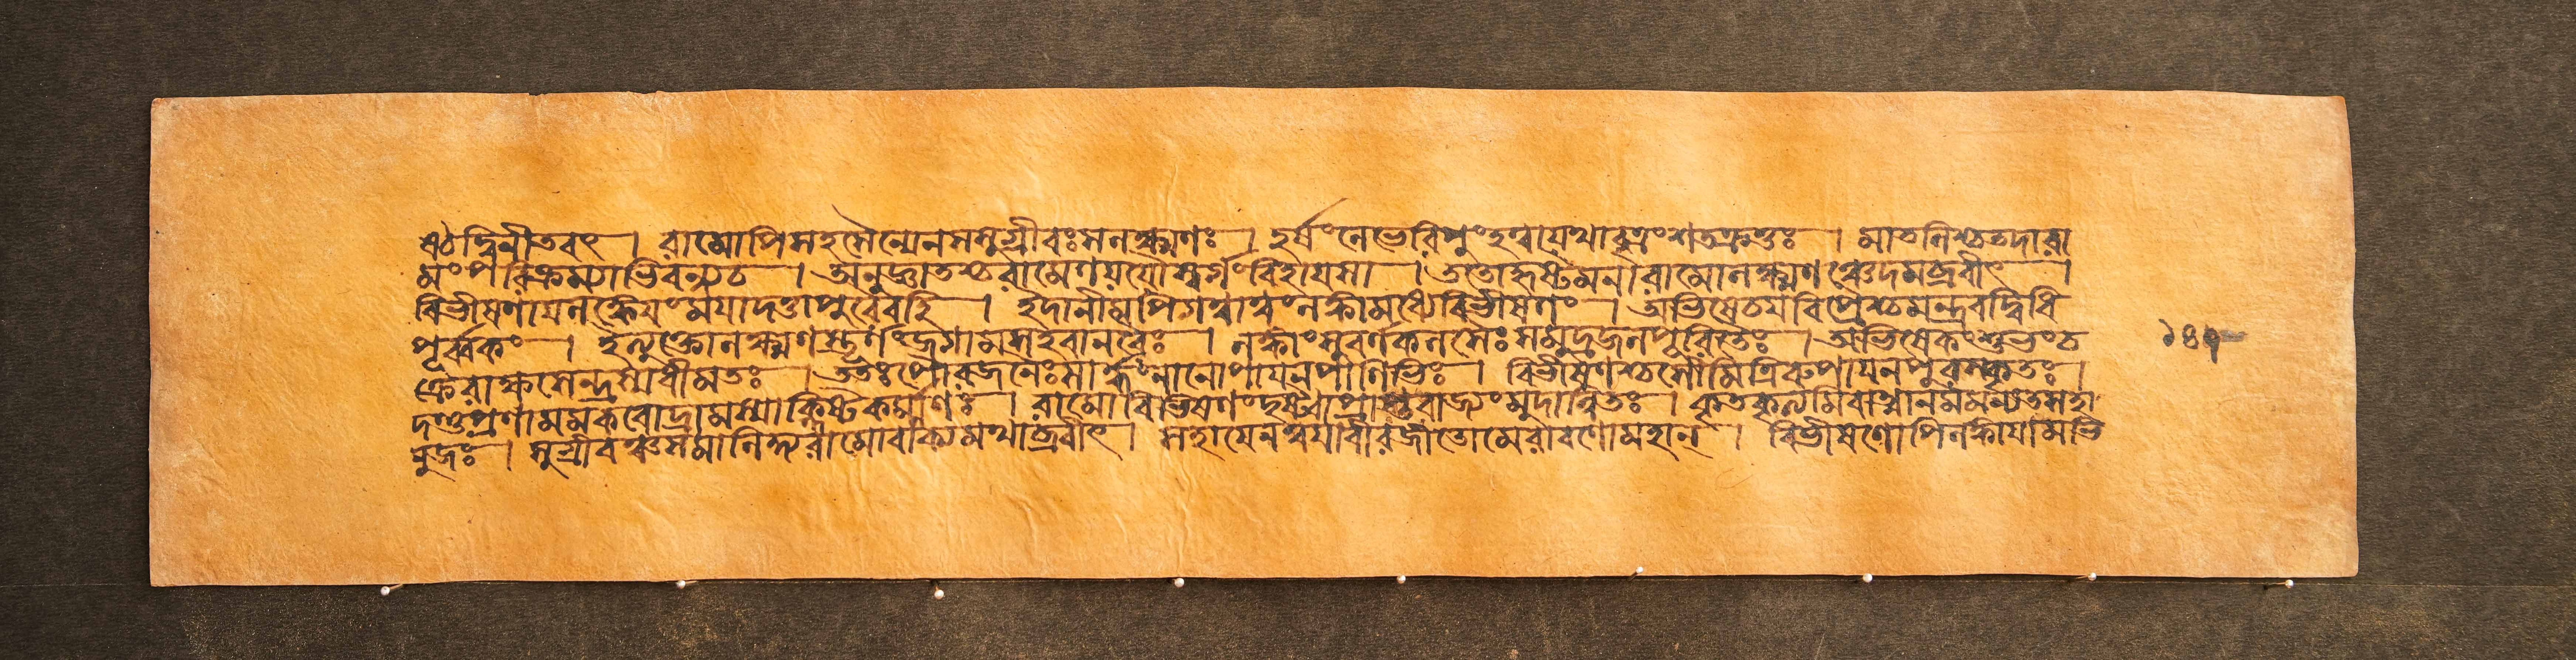 শ্চাদ্বিনীতবৎ । রামোপি সহসৈন্যেন সসুগ্রীবঃ সলক্ষ্মণঃ । হর্ষং লেভে রিপুং হত্বা যথা বৃত্রং শতক্রতুঃ । মাতলিশ্চ তদা রা
মং পরিক্রম্যাভিবন্দ্য চ । অনুজ্ঞাতশ্চ রামেণ যযৌ স্বর্গং বিহাযসা । ততো হৃষ্টমনা রামো লক্ষ্মণঞ্চেদমব্রবীৎ ।
বিভীষণায লঙ্কেযং মযা দত্তা পুরৈব হি । ইদানীমপি গত্বা ত্বং লঙ্কামধ্যে বিভীষণং । অভিষেচয বিপ্রৈশ্চ মন্ত্রবদ্বিধি
পূর্ব্বকং । ইত্যুক্তো লক্ষ্মণস্তূর্ণং জগাম সহ বানরৈঃ । লঙ্কাং সুবর্ণকলসৈঃ সমুদ্রজলপূরিতৈঃ । অভিষেকং শুভং চ
ক্রে রাক্ষসেন্দ্রস্য ধীমতঃ । ততঃ পৌরজনৈঃ সার্দ্ধং নানোপাযনপাণিভিঃ । বিভীষণশ্চ সৌমিত্রিরুপাযনপুরস্কৃতঃ ।
দণ্ডপ্রণামমকরোদ্রামস্যাক্লিষ্টকর্মণঃ । রামো বিভিষণং দৃষ্ট্বা প্রাপ্তরাজ্যং মুদান্বিতঃ । কৃতকৃত্যমিবাত্মানমমন্যত সহা
নুজঃ । সুগ্রীবঞ্চ সমালিঙ্গ্য রামো বাক্যমথাব্রবীৎ । সহাযেন ত্বযা বীর জীতো মে রাবণো মহান্ । বিভীষণোপি লঙ্কাযামভি